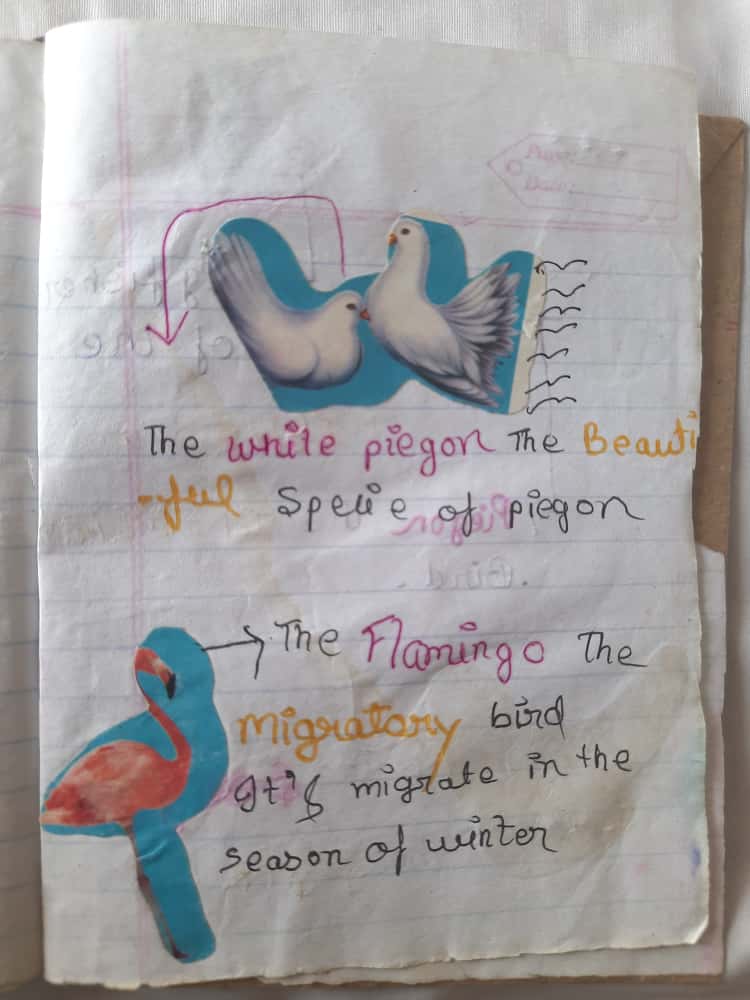 Page:
Date:
The white piegon The Beauti
-ful Specie of piegon
The Flamingo The
migratory bird
It's migrate in the
season of winter